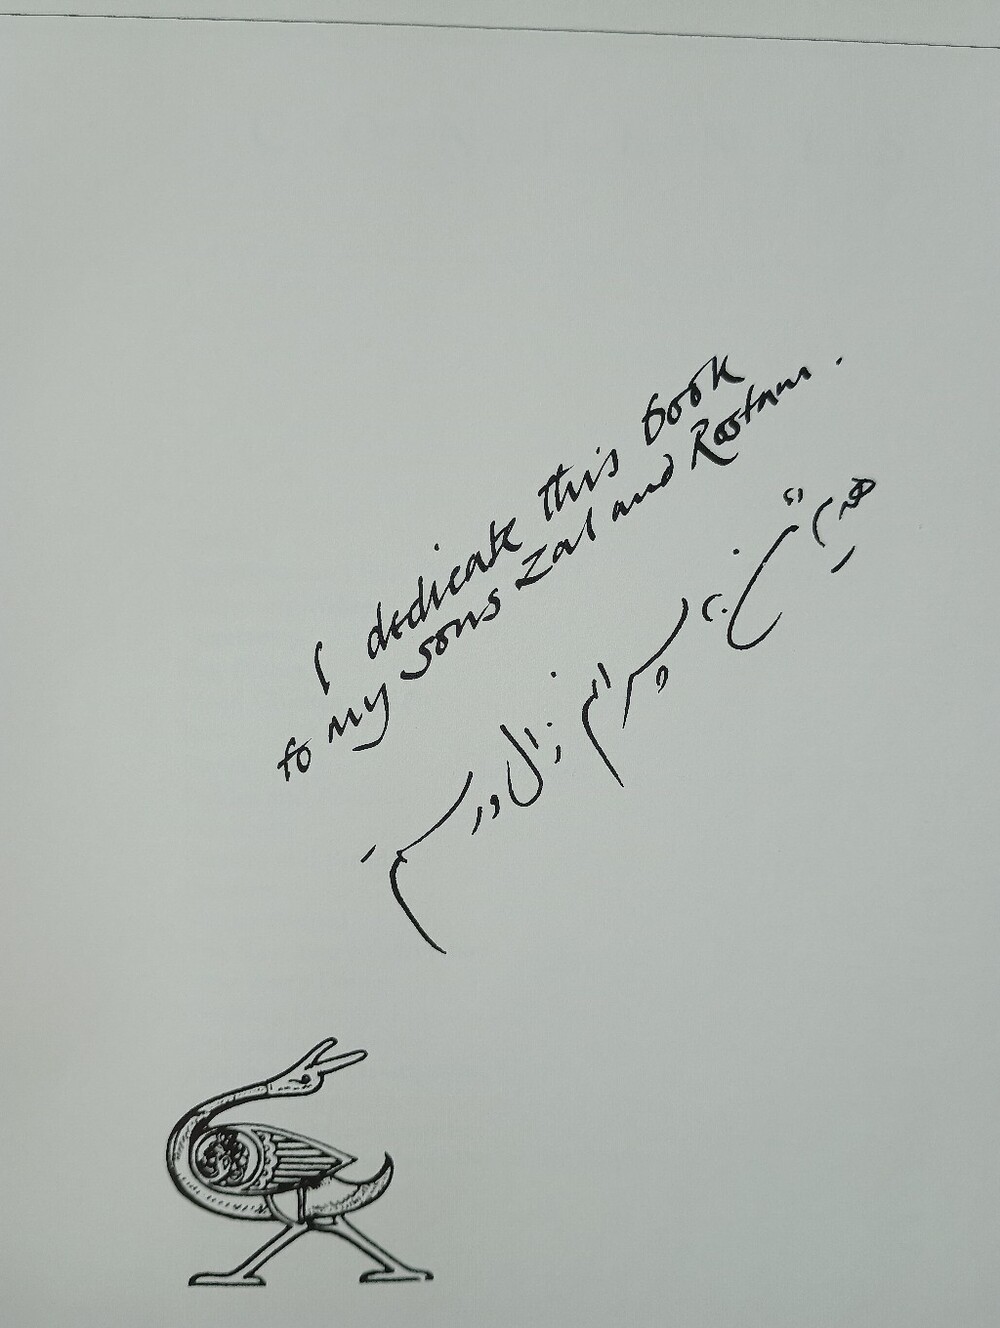 I dedicate this book
to my sons Zal and Roostam.
پسرانم زال و رستم